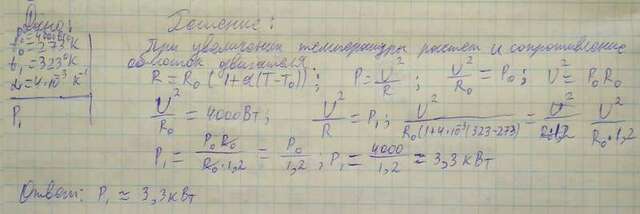 Дано:
P₀=4000Вт
t₀=273°К
t₁=323°К
α=4·10⁻³ К⁻¹
P₁
Решение:
При увеличении температуры растет и сопротивление
обмоток двигателя
R=R₀(1+α(T-T₀)); P=U²/R; U²/R₀=P₀; U²=P₀R₀
U²/R₀=4000Вт; U²/R=P₁; U²/R₀(1+4·10⁻³(323-273))=U²/R₀·1,2 U²/R₀·1,2
P₁=P₀R₀/R₀·1,2=P₀/1,2; P₁=4000/1,2≈3,3кВт
Ответ: P₁≈3,3кВт